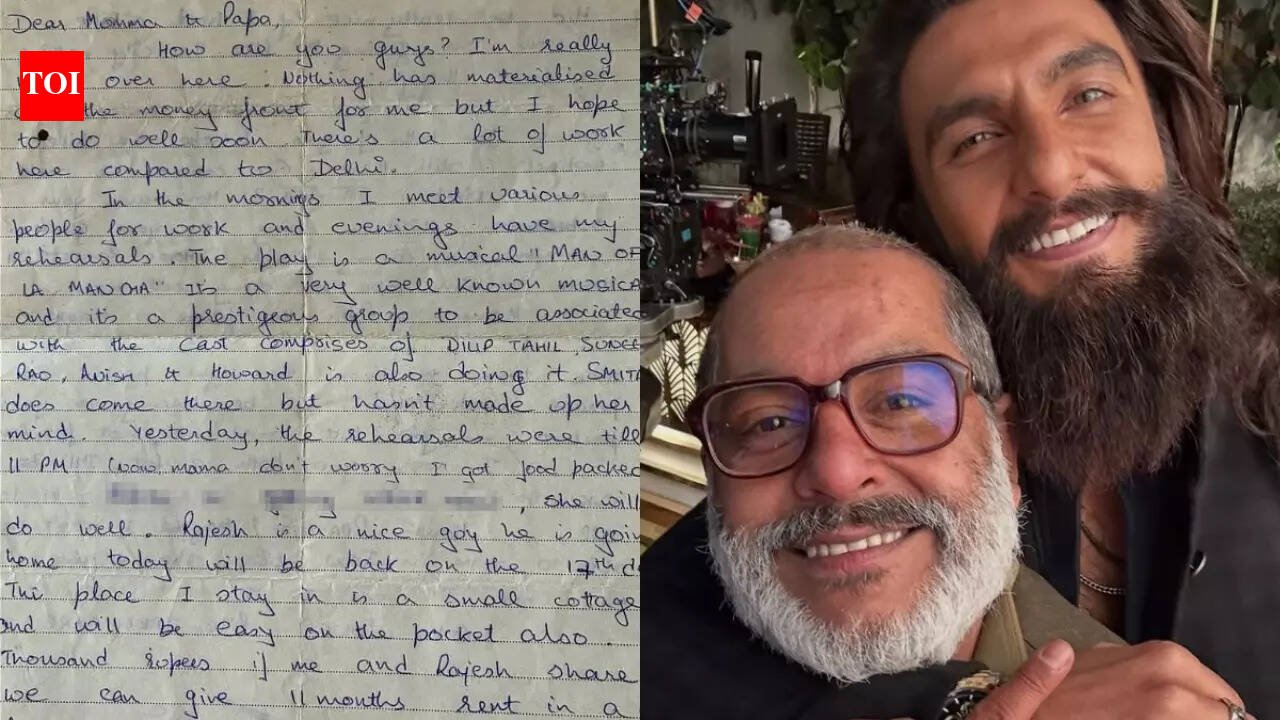 Dear Momma & Papa,
How are you guys? I'm really
TOI
over here. Nothing has materialised
the money front for me but I hope
to do well soon There's a lot of work
here compared to Delhi.
In the mornings I meet various
people for work and evenings have my
rehearsals. The play is a musical "MAN OF
LA MANCHA" Its a very well known musica
and it's a prestigeous group to be associated
with the cast comprises of DILIP TAHIL, SUNEE
RAO, Avish & Howard is also doing it. SMITA
does come there but hasn't made up her
mind. Yesterday, the rehearsals were till
11 PM (wow, mama don't worry I got food packed
, she will
do well. Rajesh is a nice guy he is goin
home today will be back on the 17th d
The place I stay in is a small cottage
and will be easy on the pocket also.
Thousand rupees if me and Rajesh share
we can give 11 months rent in a